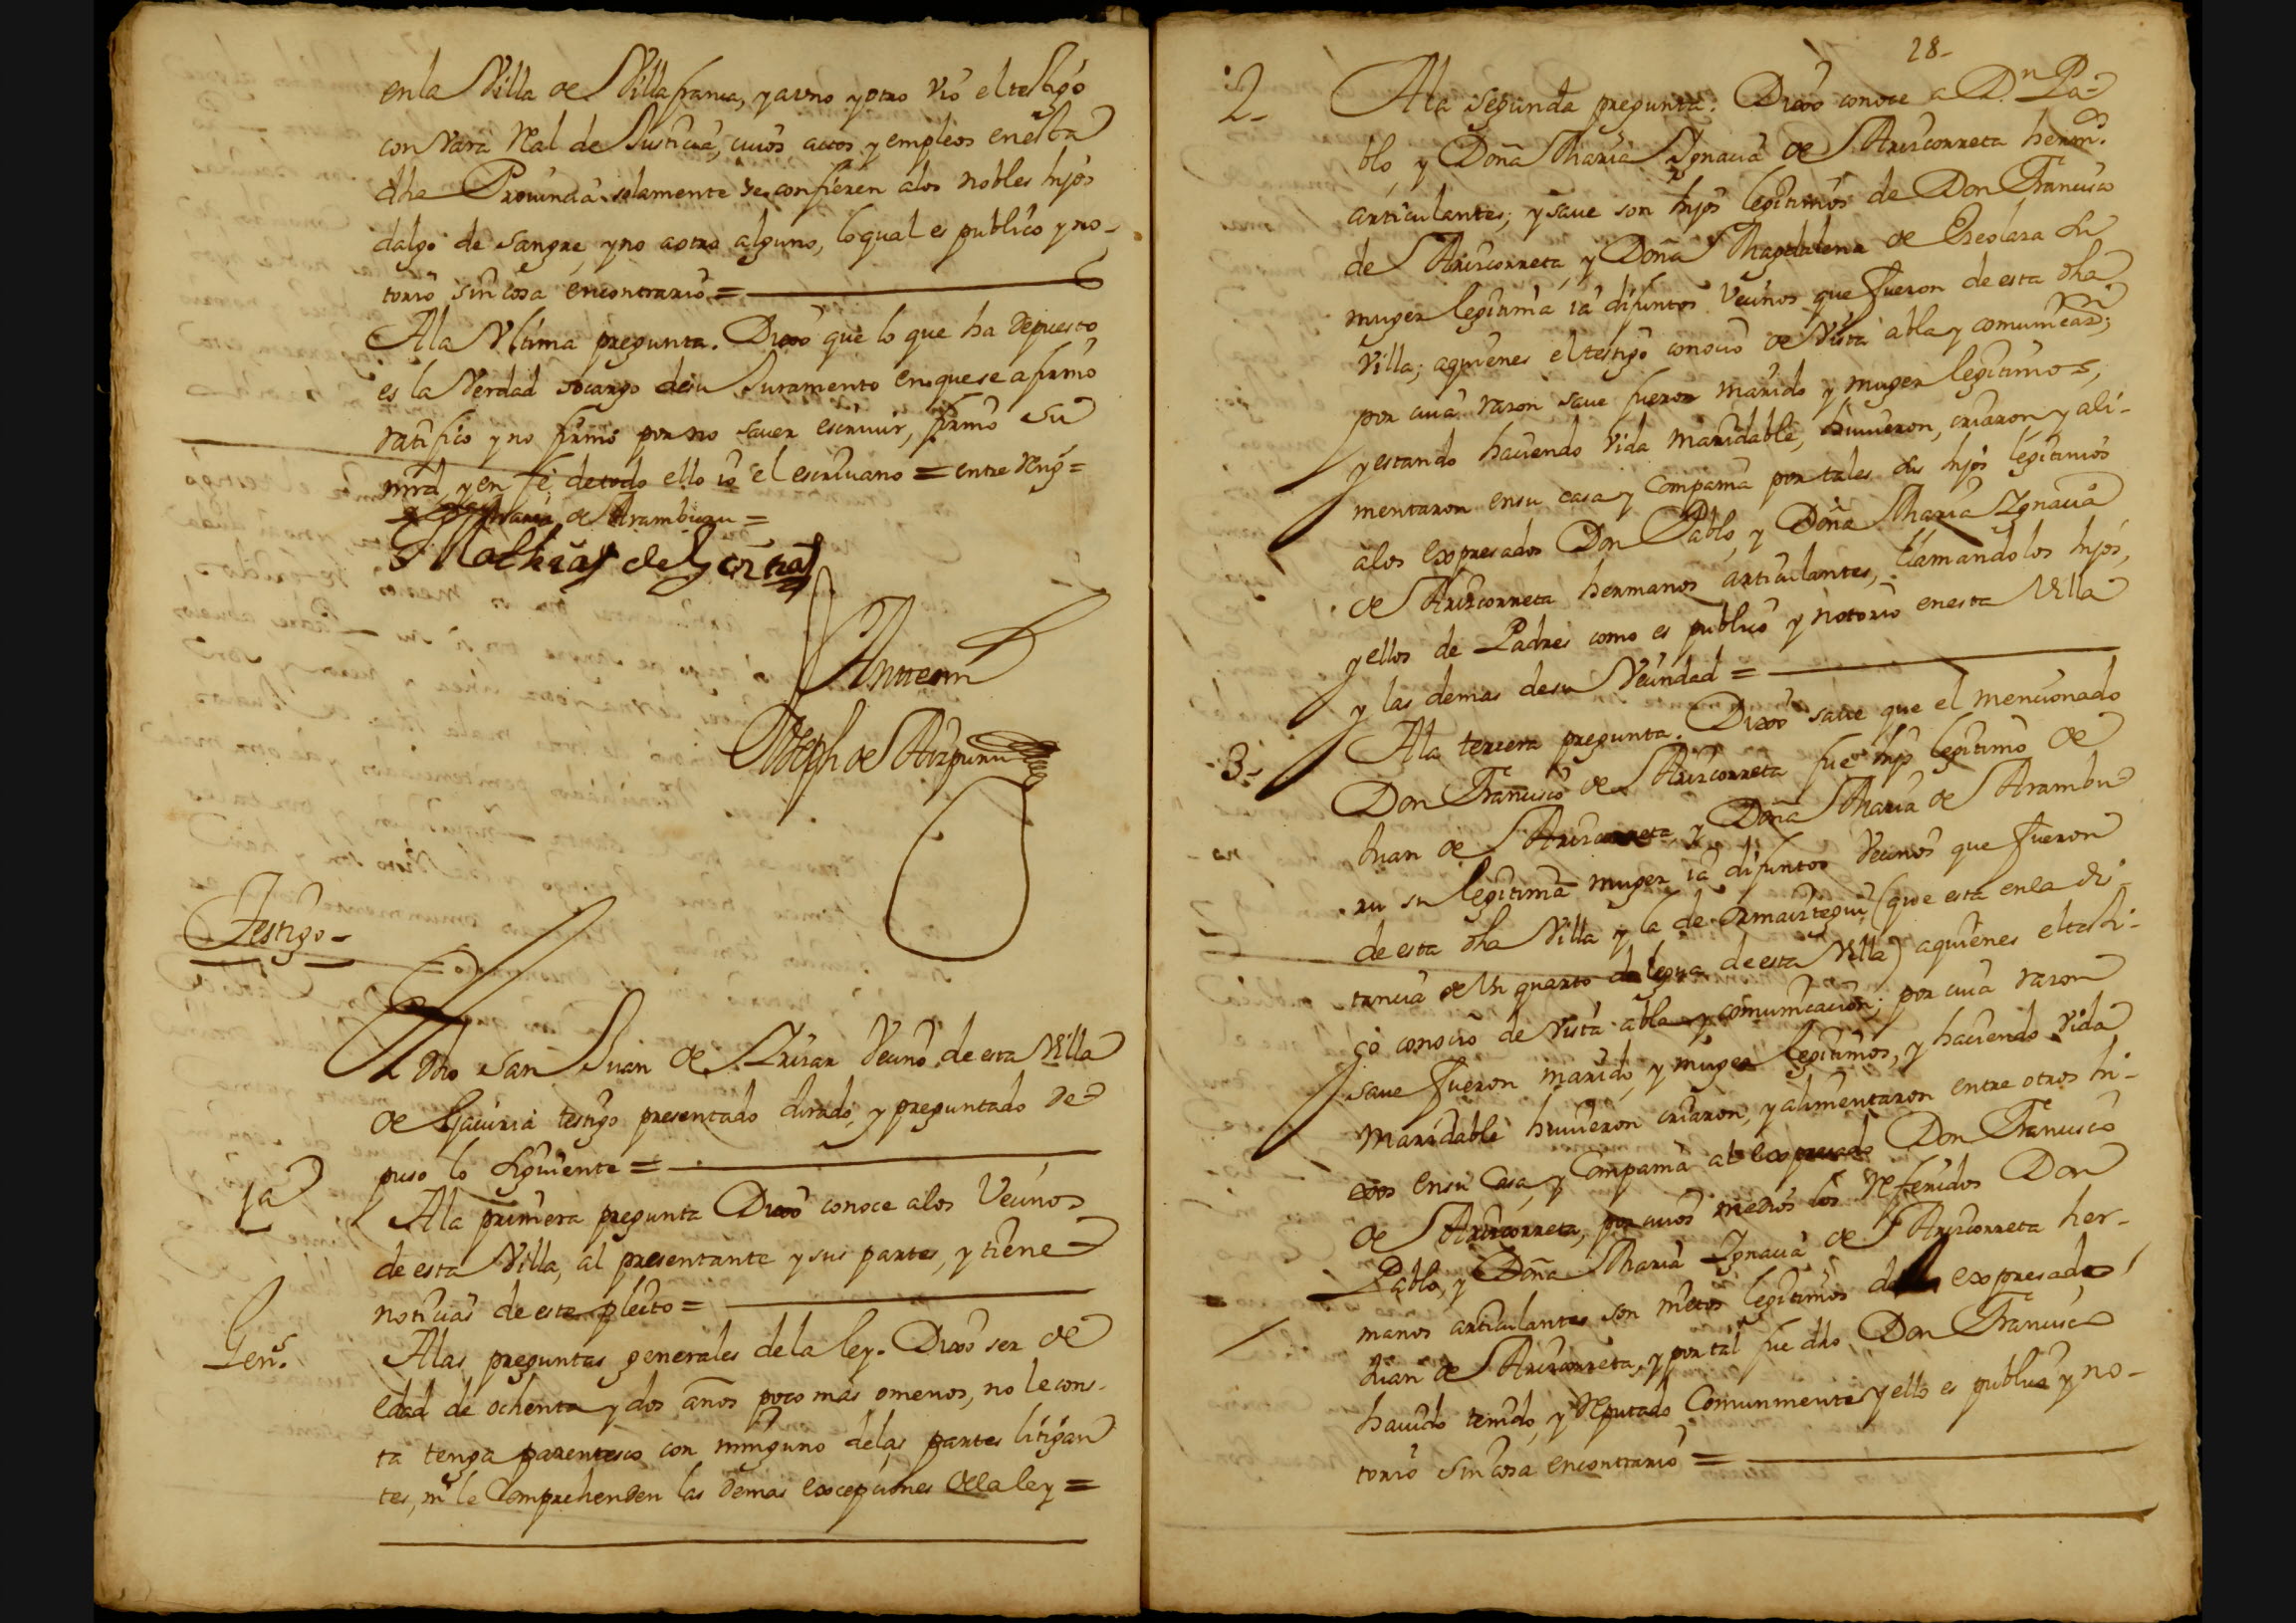 enla Villa de Villafranca, y auno y otro vió el testigo
con Vara Real de Justicia, cuios actos y empleos enesta
dha Prouincia solamente se confieren alos nobles hijos
dalgo de sangre, yno aotro alguno, loqual es publico yno-
torio sin cosa encontrario =
Ala Vltima pregunta. Dixo que lo que ha depuesto
es la Verdad socargo desu Juramento enquese afirmo
ratifico y no firmó por no sauer escriuir, firmó su
mrd, y en fe, detodo ello io el escriuano = entre Reng=
Maria de Aramburu =
Mathias del Corral
Antemi
Joseph de Aizpuru
Testigo-
El dho San Juan de Yrizar Vecino de esta Villa
de Segura testigo presentado Jurado, y preguntado de-
puso lo siguiente =
1a
Ala primera pregunta Dixo conoce alos Vecinos
de esta Villa, al presentante y sus partes, y tiene
noticias de este pleito =
Gens.
Alas preguntas generales dela ley. Dixo ser de
edad de ochenta y dos años poco mas omenos, no lecons-
ta tenga parentesco con ninguno delas partes litigan
tes, ni le Comprehenden las demas excepciones dela ley =
28-
2-
Ala segunda pregunta. Dixo conoce a Dn. Pa-
blo, y Doña Maria Ygnacia de Arizcorreta hermos.
articulantes; y saue son hijos legitimos de Don Francisco
de Arizcorreta, y Doña Magdalena de su
muger legitima ia difuntos Vecinos que fueron de esta dha
Villa; aquienes el testigo conoció de Vista abla y comunicazn;
por cuia razon saue fueron marido y muger legitimos,
y estando haciendo Vida maridable, huuieron, criaron y ali-
mentaron ensu casa y Compañia por tales sus hijos legitimos
alos expresados Don Pablo, y Doña Maria Ygnacia
de Arizcorreta hermanos articulantes, llamandolos hijos,
y ellos de Padres como es publico y notorio enesta Villa
y las demas desu Vecindad =
3-
Ala tercera pregunta. Dixo saue que el mencionado
Don Francisco de Arizcorreta fue hijo legitimo de
Juan de Arizcorreta, y Doña Maria de Arambu
ru su legitima muger ia difuntos Vecinos que fueron
de esta dha Villa y la de Ormaiztegui (que esta enla dis-
tancia de Vn quarto de legua de esta Villa) aquienes eltesti-
go conoció de Vista abla y comunicacion; por cuia razon
saue fueron marido, y muger legitimos, y haciendo Vida
Maridable huuieron criaron, y alimentaron entre otros hi-
xos ensu Casa, y Compañia al expresado Don Francisco
de Arizcorreta, por cuios medios los Referidos Don
Pablo, y Doña Maria Ygnacia de Arizcorreta her-
manos articulantes son nietos legitimos del expresado
Juan de Arizcorreta, y por tal fue dho Don Francisco
hauido tenido, y Reputado Comunmente y ello es publico y no-
torio sin cosa encontrario =